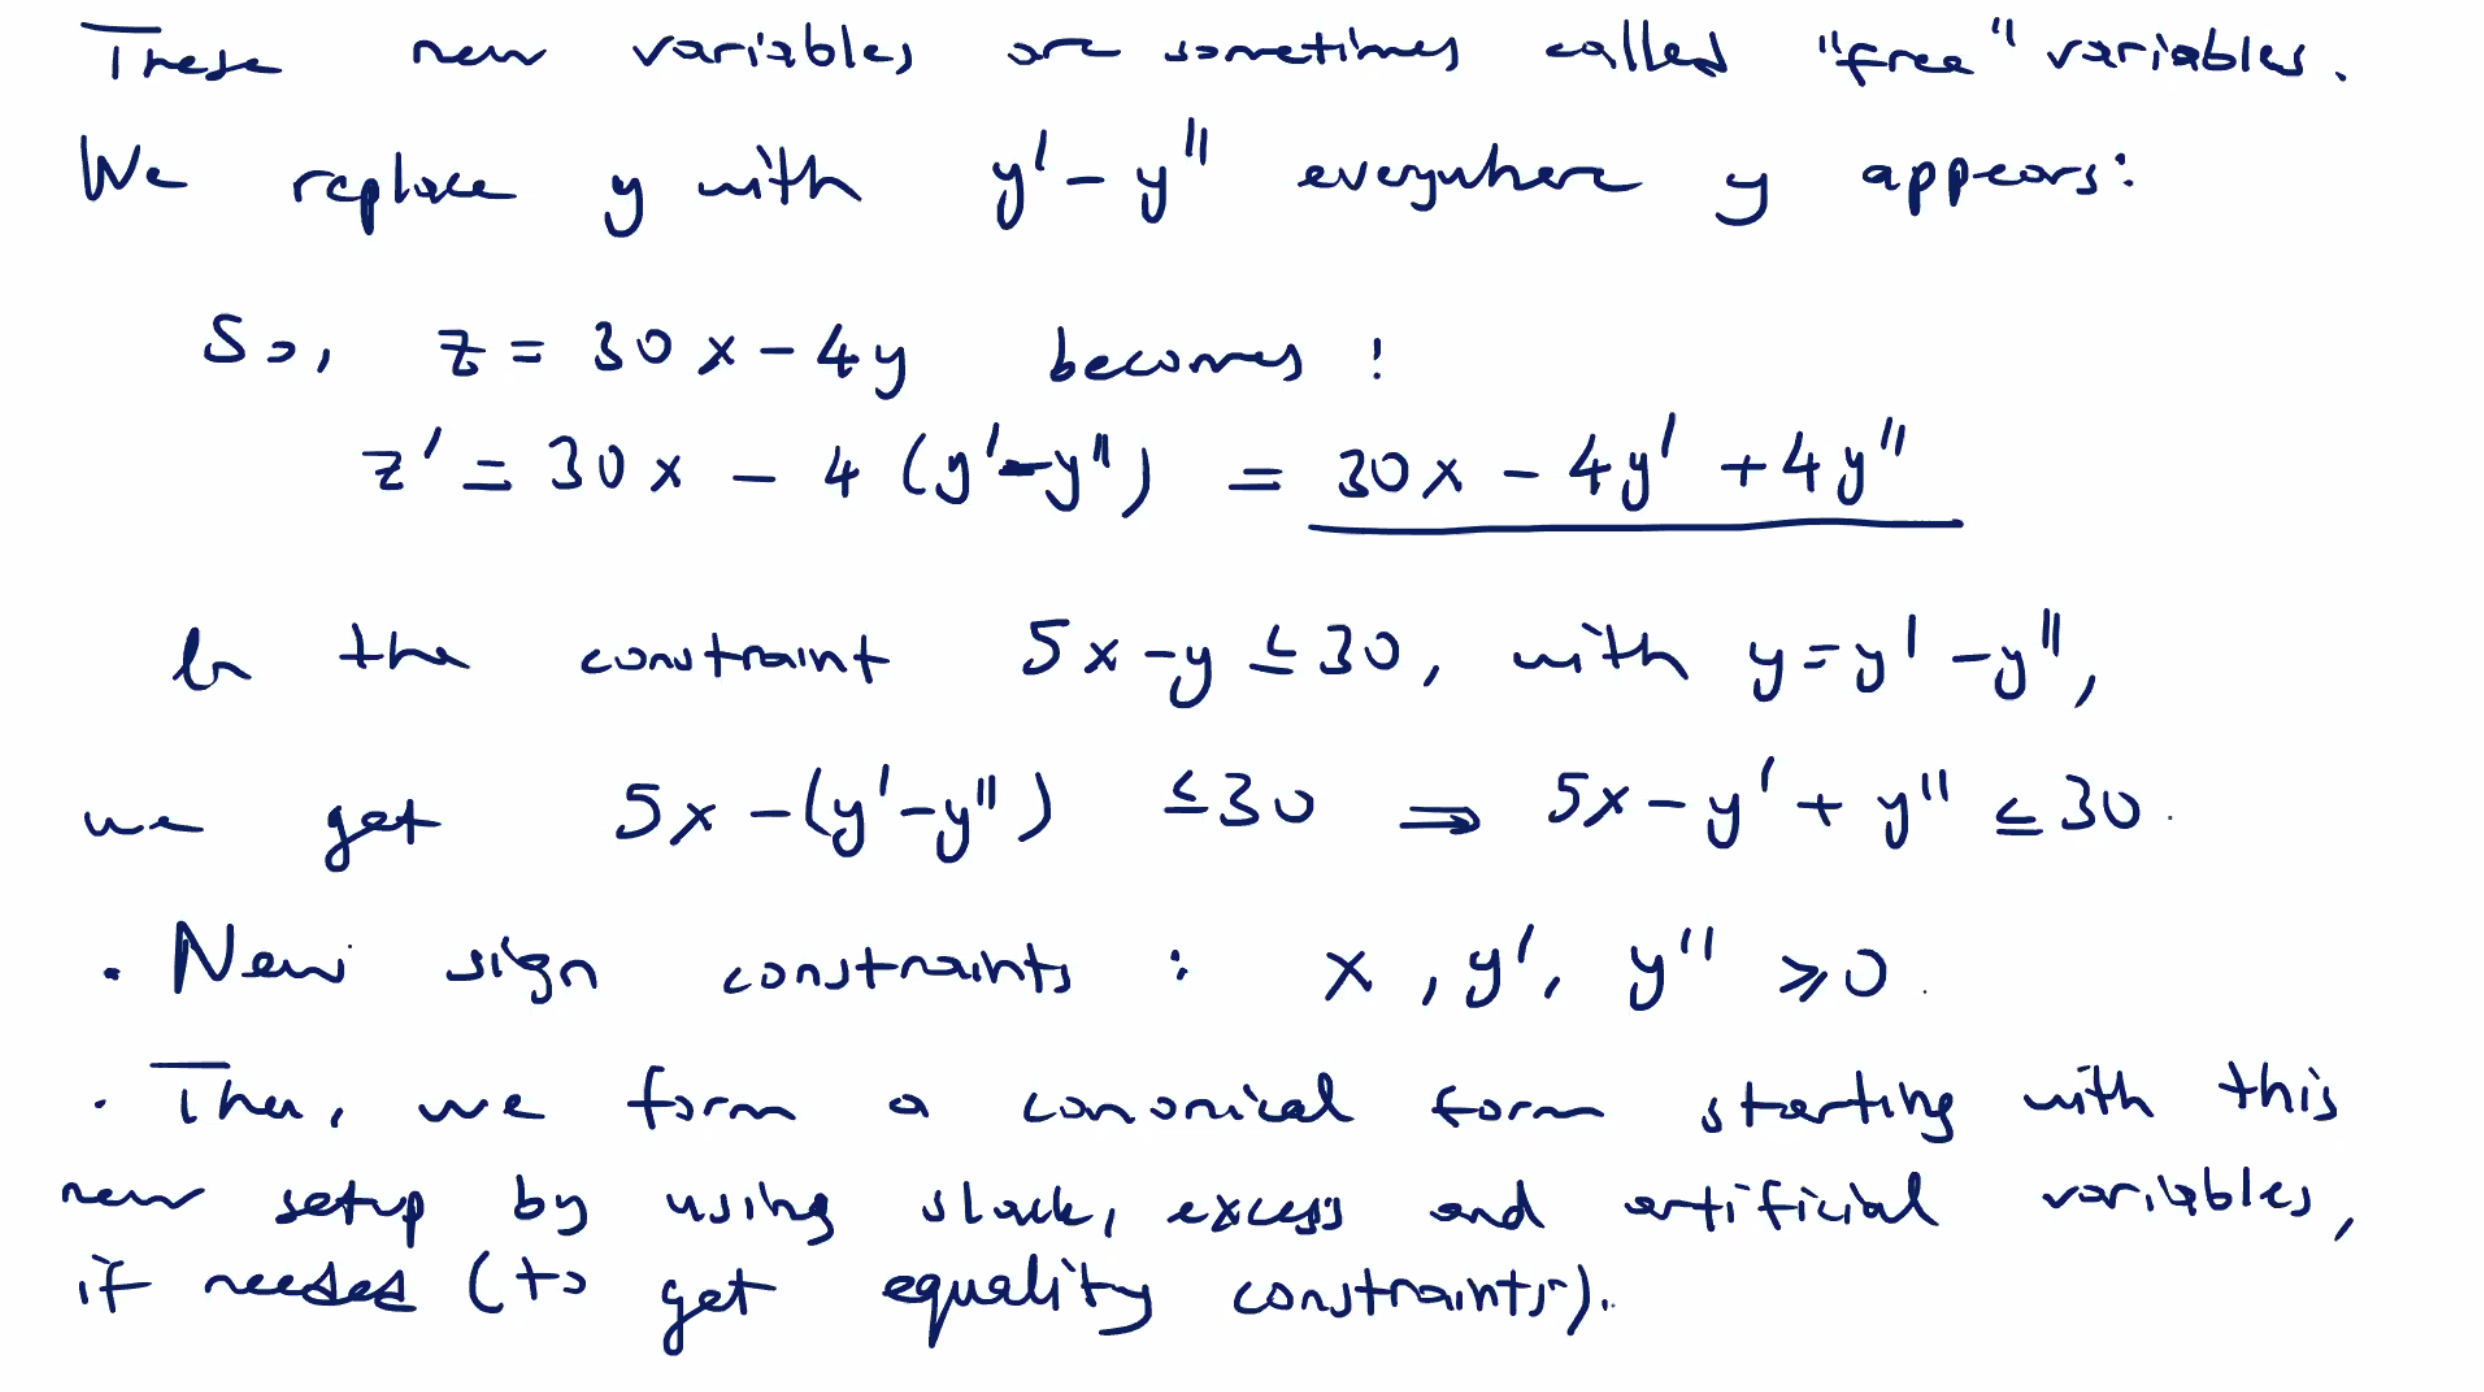 These new variables are sometimes called "free" variables.
We replace y with y' - y'' everywhere y appears:
So, z = 30x - 4y becomes:
z' = 30x - 4 (y' - y'') = 30x - 4y' + 4y''
In the constraint 5x - y ≤ 30, with y = y' - y'',
we get 5x - (y' - y'') ≤ 30 ⇒ 5x - y' + y'' ≤ 30.
• New sign constraints : x, y', y'' ≥ 0.
• Then, we form a canonical form starting with this
new setup by using slack, excess and artificial variables,
if needed (to get equality constraints).